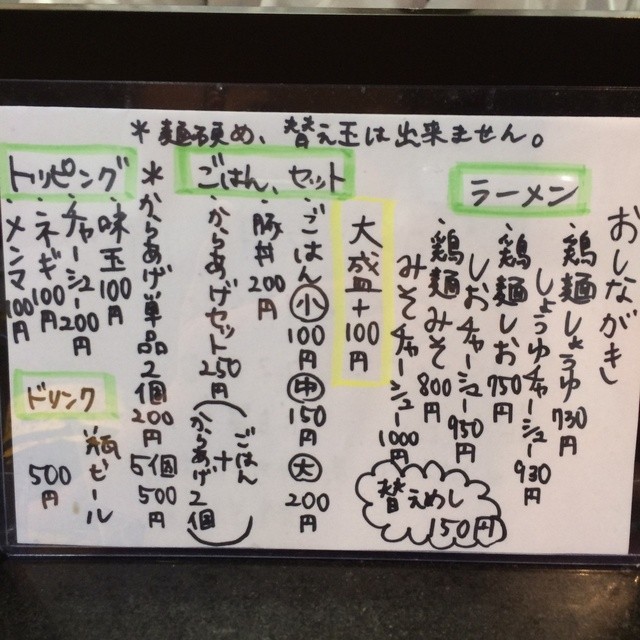 *麺硬め、替え玉は出来ません。
おしながき
ラーメン
・鶏麺しょうゆ 730円
しょうゆチャーシュー 930円
・鶏麺しお 750円
しおチャーシュー 950円
・鶏麺みそ 800円
みそチャーシュー 1000円
大盛+100円
替えめし 150円
ごはん、セット
・ごはん 小 100円 中 150円 大 200円
・豚丼 200円
・からあげセット 250円 (ごはん+からあげ2個)
*からあげ単品 2個 200円 5個 500円
トッピング
・味玉 100円
・チャーシュー 200円
・ネギ 100円
・メンマ 100円
ドリンク
・瓶ビール 500円